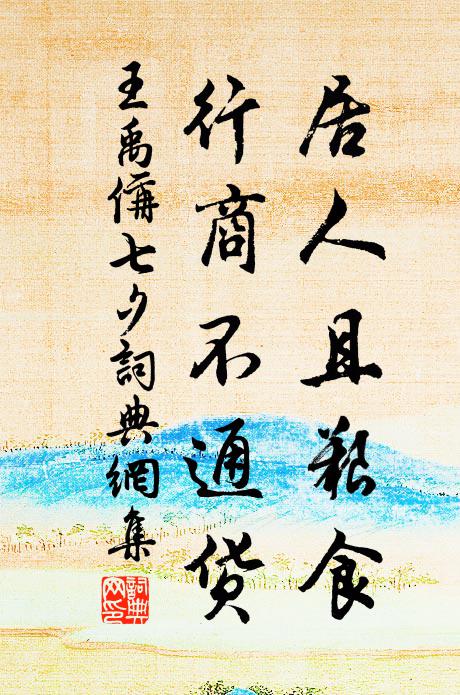 居人且艱食
行商不通货
王禹偁七夕詞典網集
詞典
网印